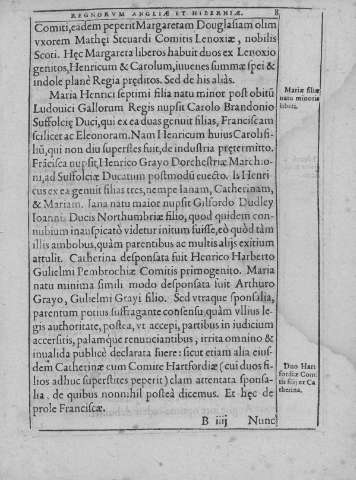 REGNORVM ANGLIÆ ET HIBERNIÆ. 8
Comiti, eadem peperit Margaretam Douglasiam olim
vxorem Mathęi Steuardi Comitis Lenoxiæ, nobilis
Scoti. Hęc Margareta liberos habuit duos ex Lenoxio
genitos, Henricum & Carolum, iuuenes summæ spei &
indole planè Regia pręditos. Sed de his aliàs.
Maria Henrici septimi filia natu minor post obitũ
Ludouici Gallorum Regis nupsit Carolo Brandonio
Suffolcię Duci, qui ex ea duas genuit filias, Franciscam
scilicet ac Eleonoram. Nam Henricum huius Caroli fi-
liũ, qui non diu superstes fuit, de industria prętermitto.
Frãcisca nupsit, Henrico Grayo Dorchestriæ Marchio-
ni, ad Suffolciæ Ducatum postmodũ euecto. Is Henri
cus ex ea genuit filias tres, nempe Ianam, Catherinam,
& Mariam. Iana natu maior nupsit Gilfordo Dudley
Ioannis Ducis Northumbriæ filio, quod quidem con-
nubium inauspicatò videtur initum fuisse, eò quòd tàm
illis ambobus, quàm parentibus ac multis alijs exitium
attulit. Catherina desponsata fuit Henrico Harberto
Gulielmi Pembrochiæ Comitis primogenito. Maria
natu minima simili modo desponsata fuit Arthuro
Grayo, Gulielmi Grayi filio. Sed vtraque sponsalia,
parentum potius suffragante consensu quàm vllius le-
gis authoritate, postea, vt accepi, partibus in iudicium
accersitis, palamque renunciantibus, irrita omnino &
inualida publicè declarata fuere: sicut etiam alia eius-
dem Catherinæ cum Comite Hartfordiæ (cui duos fi-
lios adhuc superstites peperit) clam attentata sponsa-
lia. de quibus nonnihil posteà dicemus. Et hęc de
prole Franciscæ.
B iiij Nunc
Mariæ filiæ
natu minoris
libera.
Duo Hart
fordiæ Comi
tis filij ex Ca
therina.